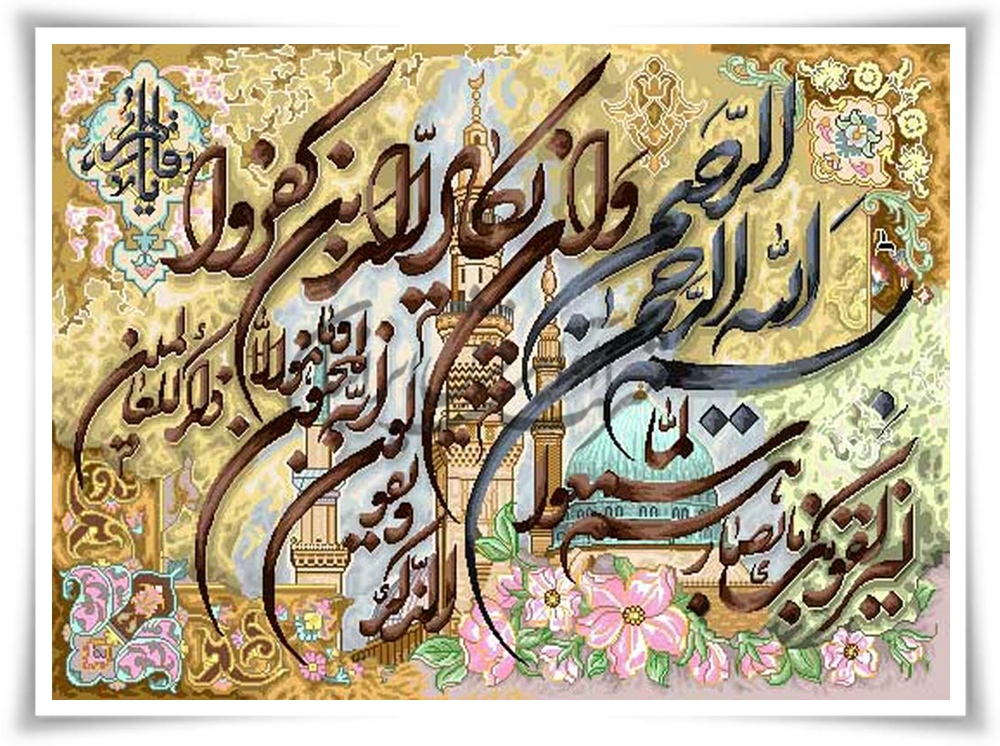 بسم الله الرحمن الرحیم
وان یکاد الذین کفروا
لیزلقونک بابصارهم
لما سمعوا
الذکر
ویقولون
انه لمجنون
وما هو الا
ذکر للعالمین